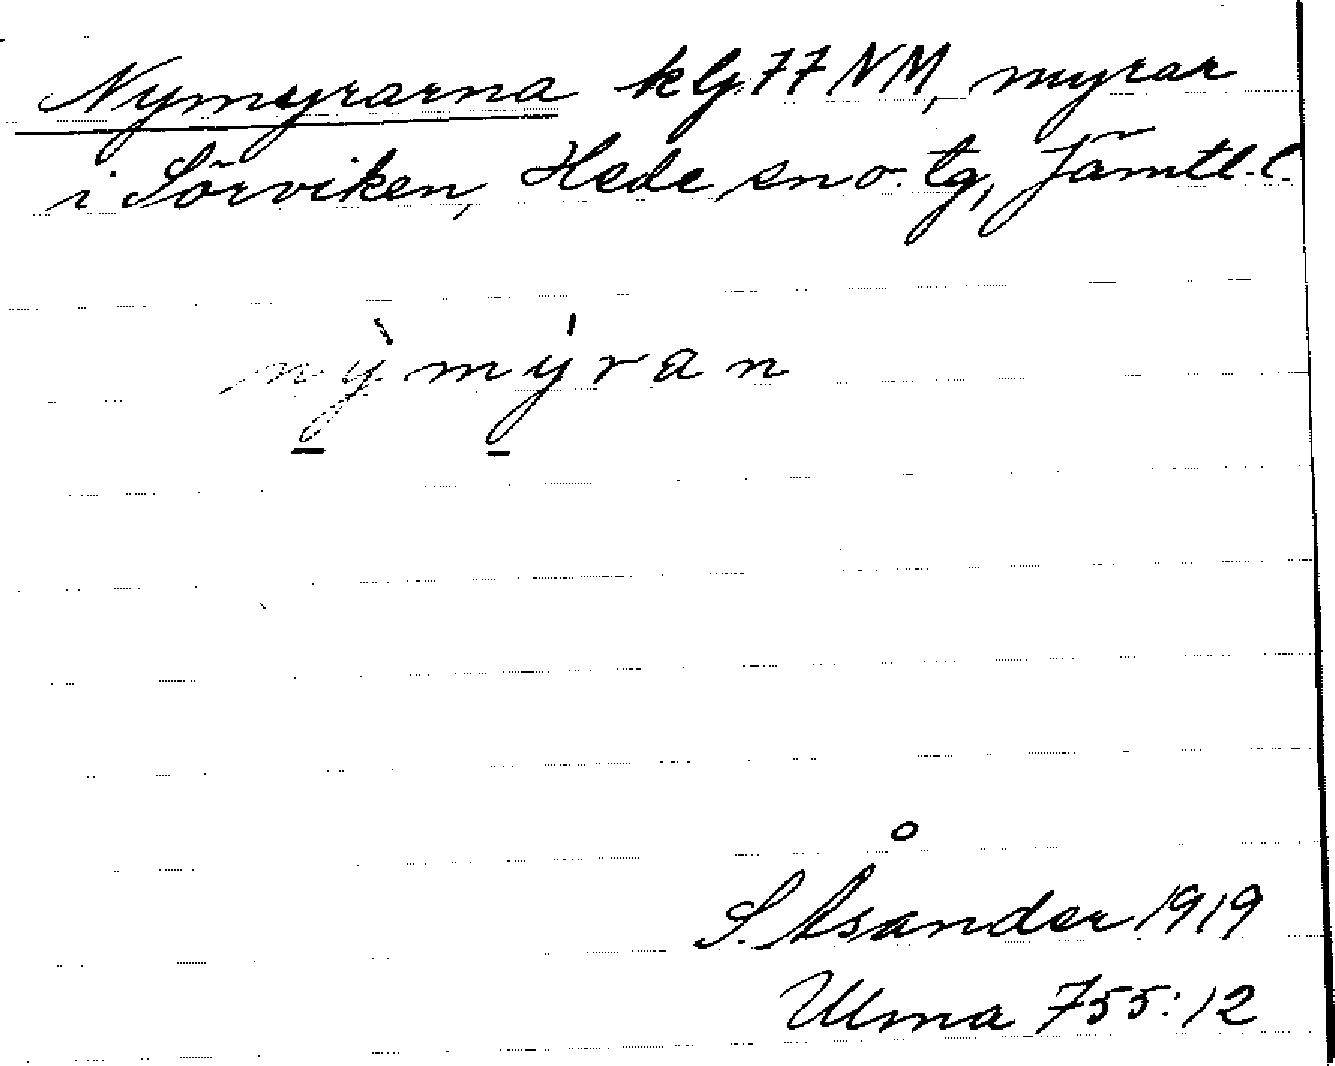 Nymyrarna kbl. 77 NM, myrar
i Sörviken, Hede sn o. tg, Jämtl. l.
nỳmýran
S. Åsander 1919
Ulma 755:12